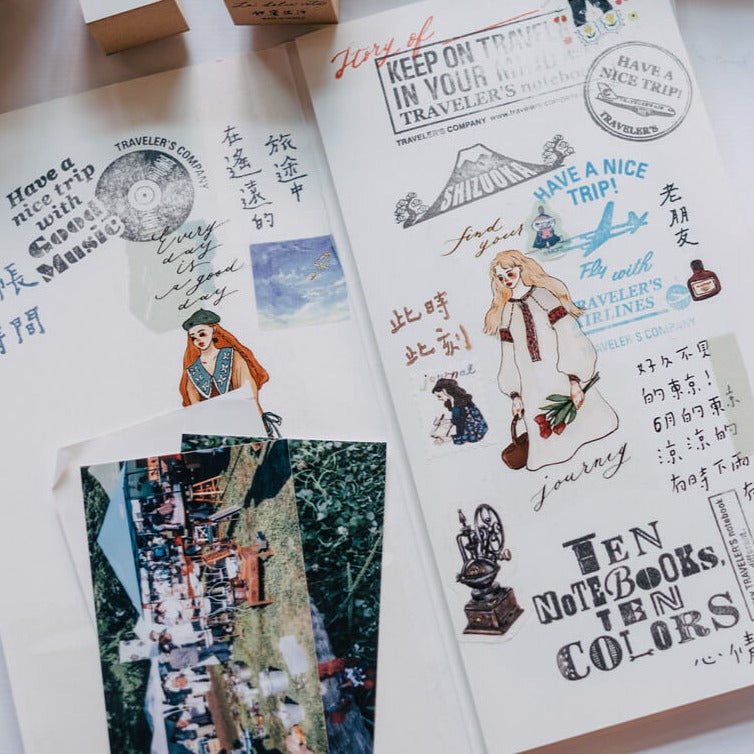 Have a
nice trip
with
Good
Music
TRAVELER'S COMPANY
旅途中
在遙遠的
Every
day
is
a good
day
時間
Story of
KEEP ON TRAVELING
IN YOUR MIND
TRAVELER'S notebook
TRAVELER'S COMPANY www.travelers-company
HAVE A
NICE TRIP!
TRAVELER'S
SHIZUOKA
HAVE A NICE
TRIP!
Fly with
TRAVELER'S
AIRLINES
TRAVELER'S COMPANY
老朋友
find your
此時
此刻
journal
journey
好久不見
的東京!
6月的東京
涼涼的
有時下雨
TEN
NOTEBOOKS,
TEN
COLORS
TRAVELER'S notebook
心情